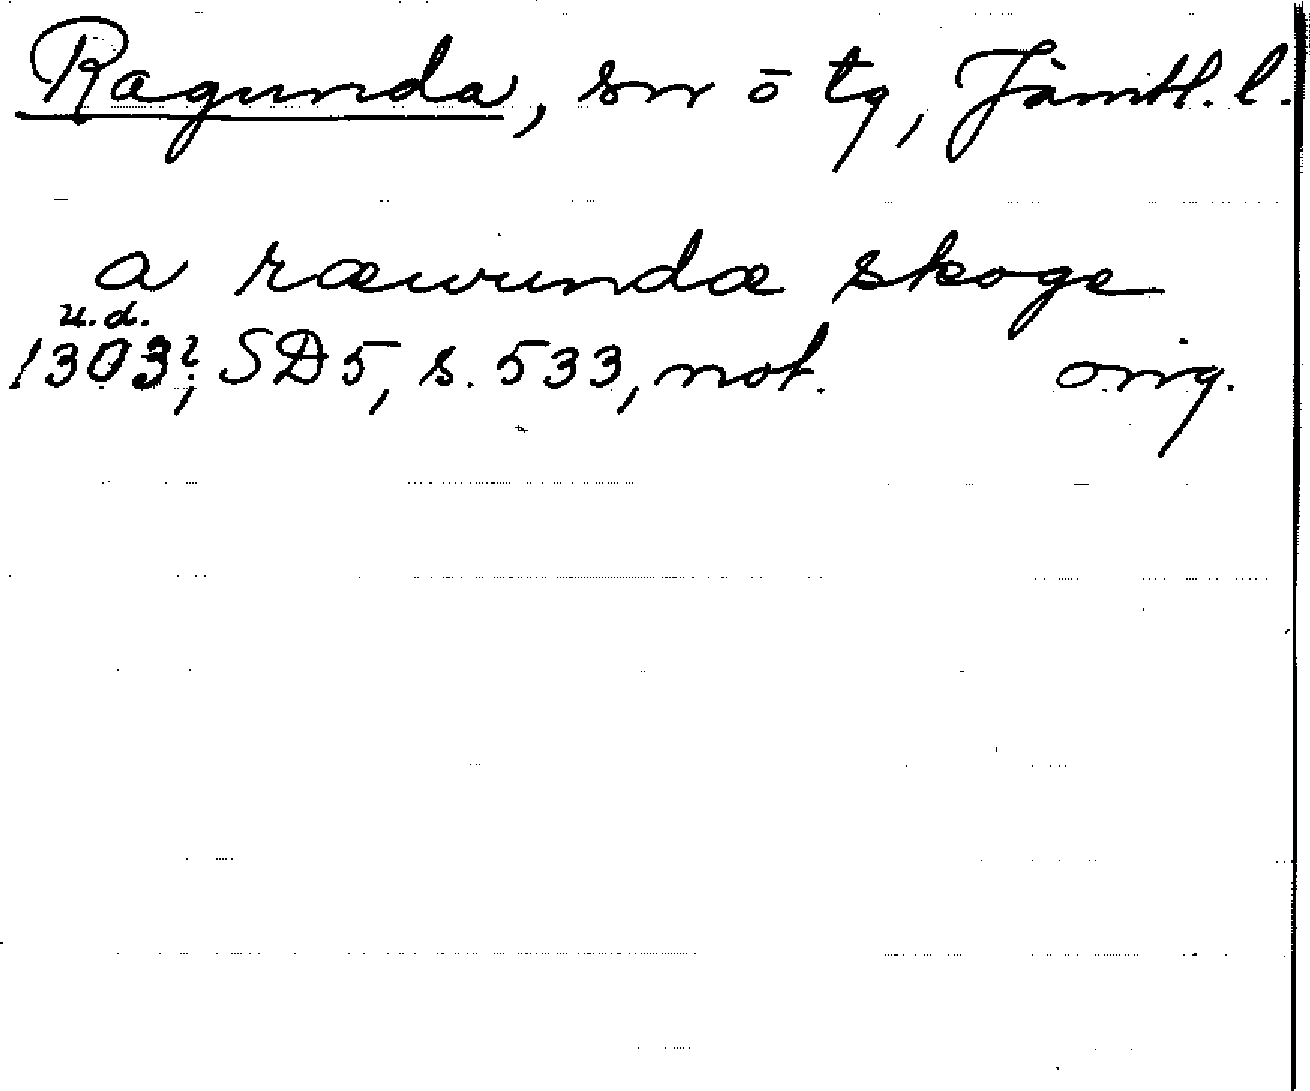 Ragunda, sn o tg, Jämtl. l.
a ræwundæ skoge
u.d.
1303?, SD5, s. 533, not. orig.